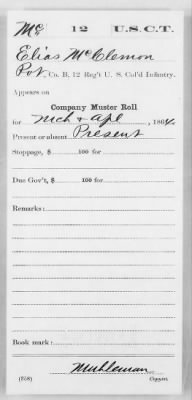 Mc 12 U.S.C.T.
Elias McClemon
Pvt., Co. B, 12 Reg't U. S. Col'd Infantry.
Appears on
Company Muster Roll
for Mch & Apl, 1864.
Present or absent Present
Stoppage, $ 100 for
Due Gov't, $ 100 for
Remarks:
Book mark:
Muhleman
(358) Copyist.